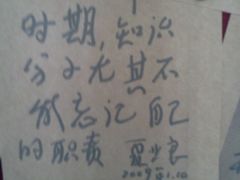 时期,知识
分子尤其不
能忘记自己
的职责 夏少良
2009.11.10